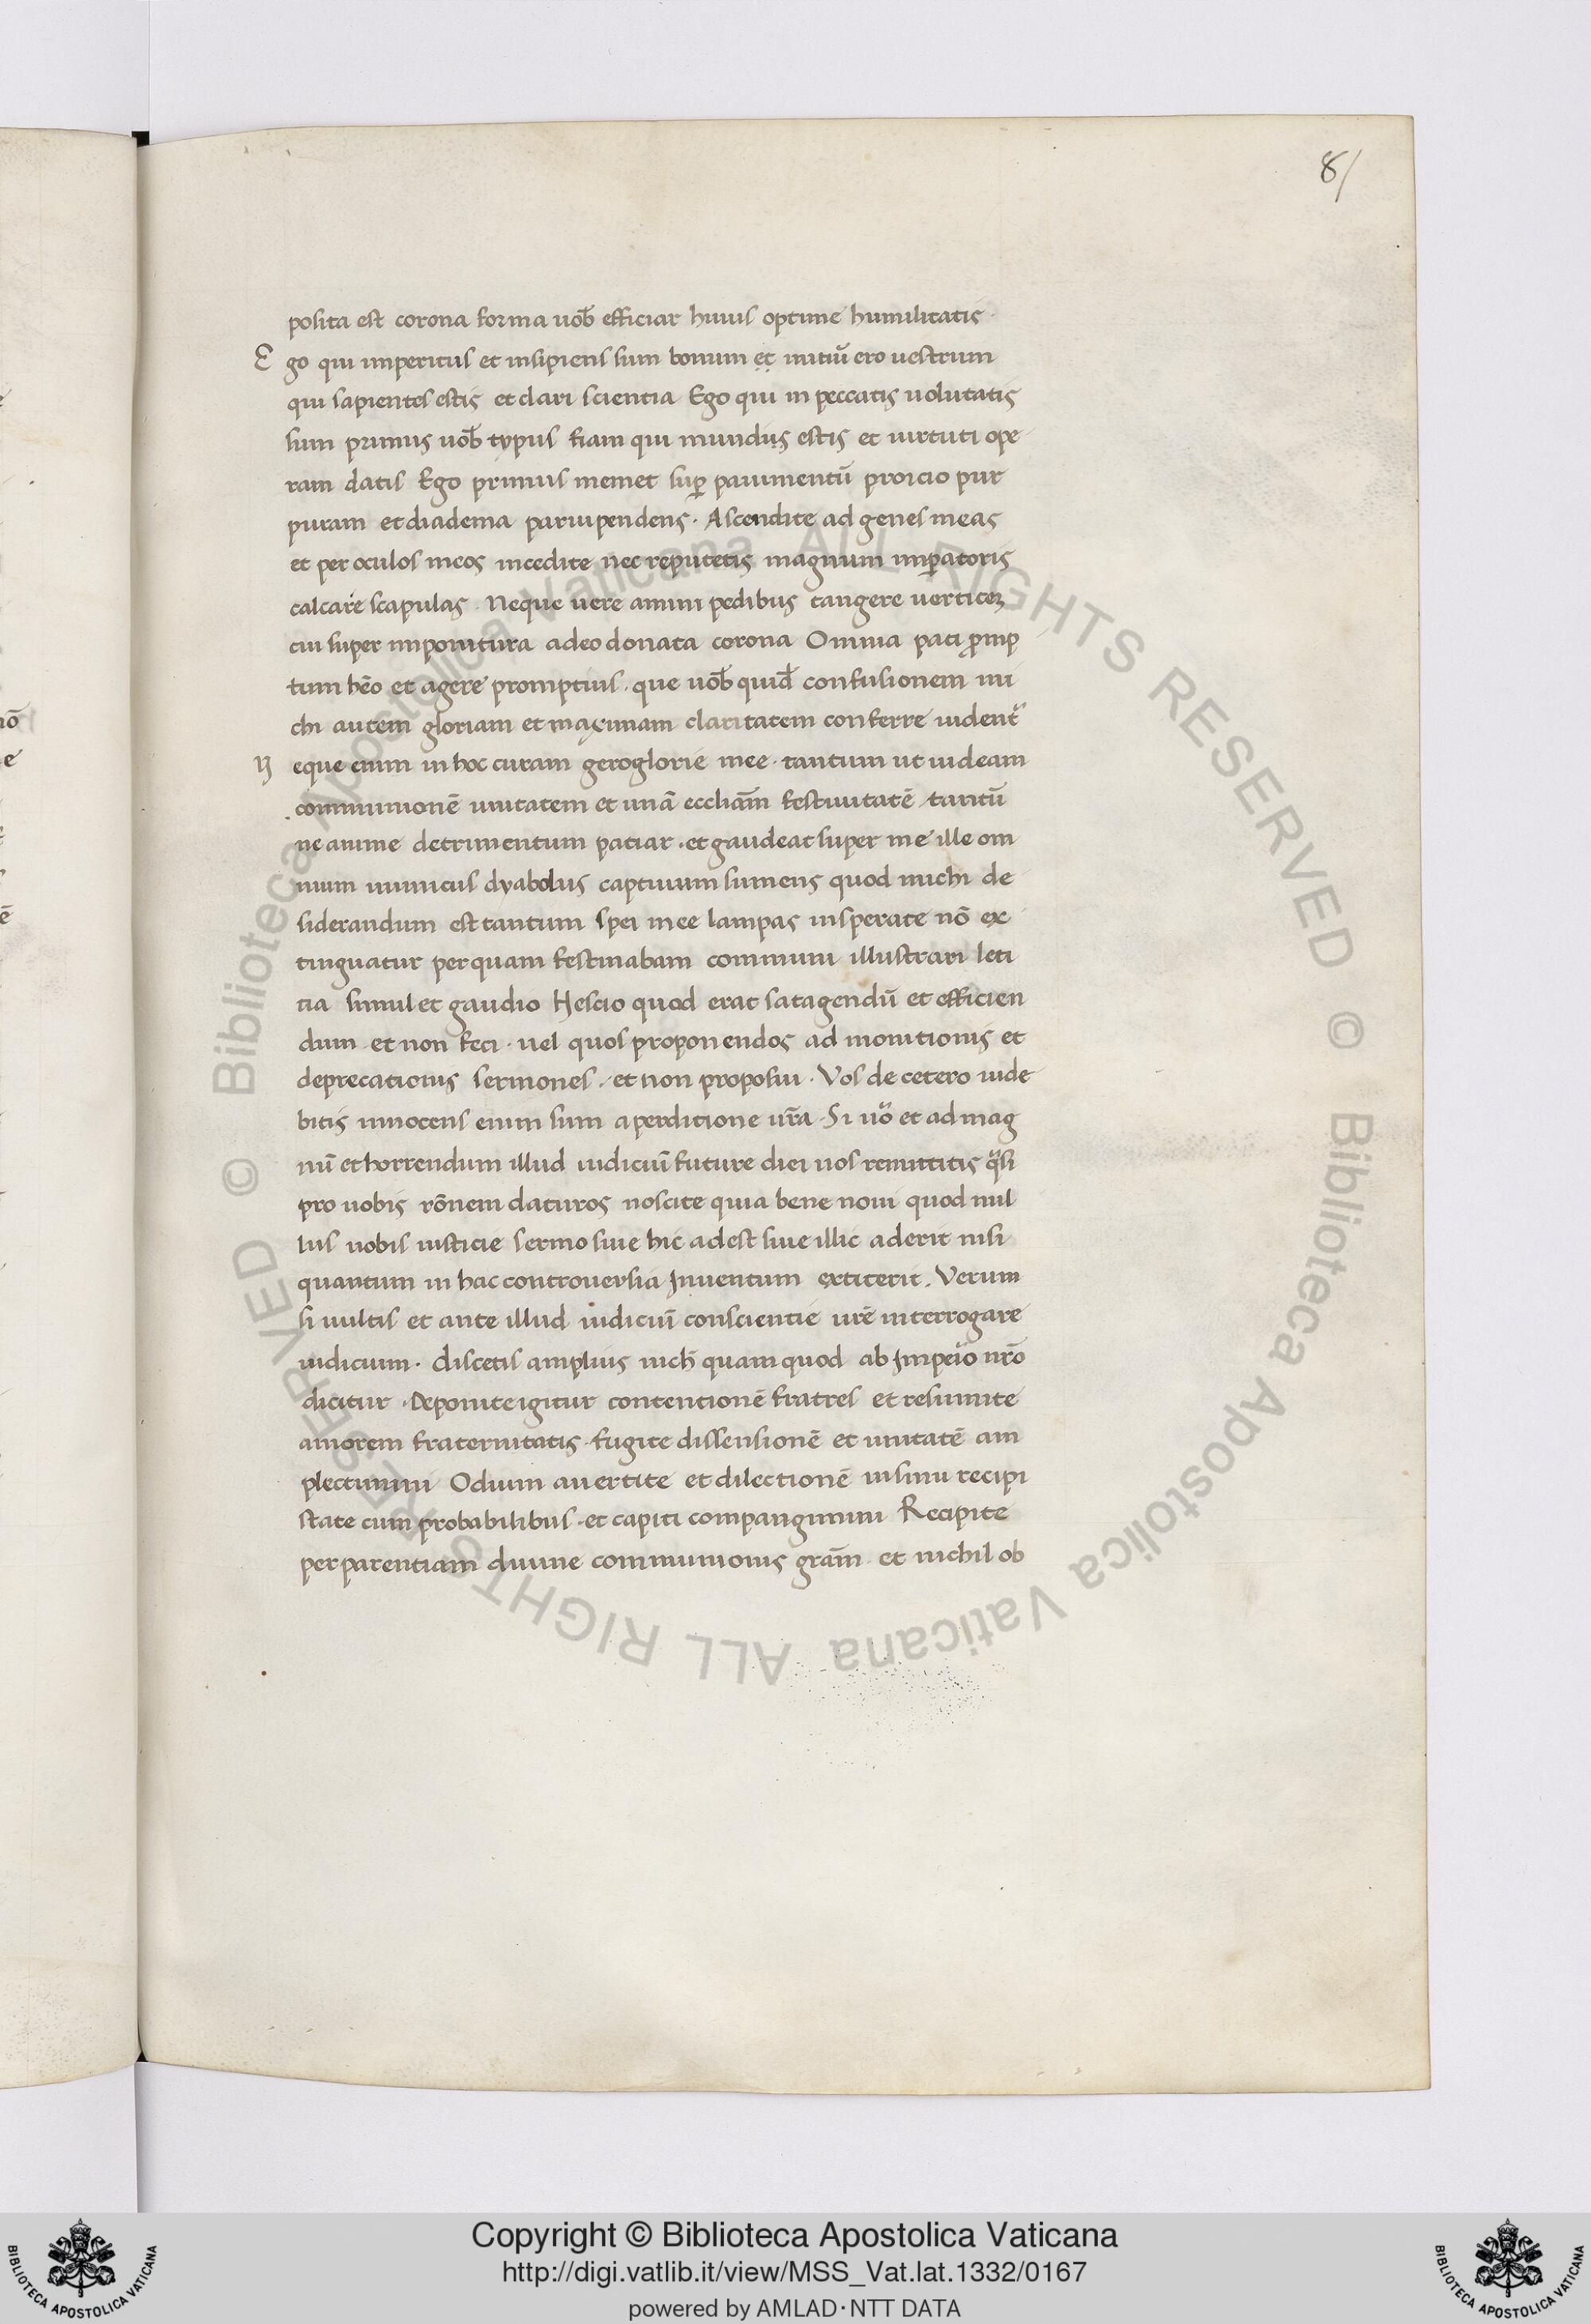 8/
posita est corona forma uob̄ efficiar huius optime humilitatis ·
Ego qui imperitus et insipiens sum bonum et initiū ero uestrum
qui sapientes estis et clari scientia Ego qui in peccatis uolutatis
sum primus uob̄ typus fiam qui mundus estis et uirtuti ope
ram datis Ego primus memet sup̄ pauimentū proicio pur
puram et diadema paruipendens · Ascendite ad genes meas
et per oculos meos incedite nec reputetis magnum imꝑatoris
calcare scapulas · Neque uere animi pedibus tangere uerticeʒ
cui super imponitura adeo donata corona Omnia pati ꝓmp
tum hēo et agere promptius · que uob̄ quid̄ confusionem mi
chi autem gloriam et maximam claritatem conferre uident̄
Neque enim in hoc curam gero glorie mee · tantum ut uideam
communionē unitatem et unā eccliam̄ festiuitatē tantū
ne anime detrimentum patiar · et gaudeat super me ille om
nium inimicus dyabolus captiuum sumens quod michi de
siderandum est tantum spei mee lampas insperate nō ex
tinguatur per quam festinabam communi illustrari leti
tia simul et gaudio Nescio quod erat satagendū et efficien
dum · et non feci · uel quos proponendos admonitionis et
deprecationis sermones · et non proposui · Vos de cetero uide
bitis innocens enim sum a perditione ur̄a · Si uō et ad mag
nū et horrendum illud iudiciū future diei nos remittitis q̄si
pro uobis rōnem daturos noscite quia bene noui quod nul
lus uobis iusticie sermo siue hic adest siue illic aderit nisi
quantum in hac controuersia Inuentum extiterit . Verum
si uultis et ante illud iudiciū conscientie ur̄e interrogare
iudicium · discetis amplius nich̄ quam quod ab Imperio nr̄o
dicitur · Deponite igitur contentionē fratres et resumite
amorem fraternitatis · fugite dissensionē et unitatē am
plectimini Odium auertite et dilectionē in sinu recipi
state cum probabilibus · et capiti compangimini Recipite
per parentiam diuine communionis gram̄ · et nichil ob
© Biblioteca Apostolica Vaticana ALL RIGHTS RESERVED © Biblioteca Apostolica Vaticana ALL RIGHTS RESERVED
Copyright © Biblioteca Apostolica Vaticana
http://digi.vatlib.it/view/MSS_Vat.lat.1332/0167
powered by AMLAD·NTT DATA
BIBLIOTECA APOSTOLICA VATICANA
BIBLIOTECA APOSTOLICA VATICANA